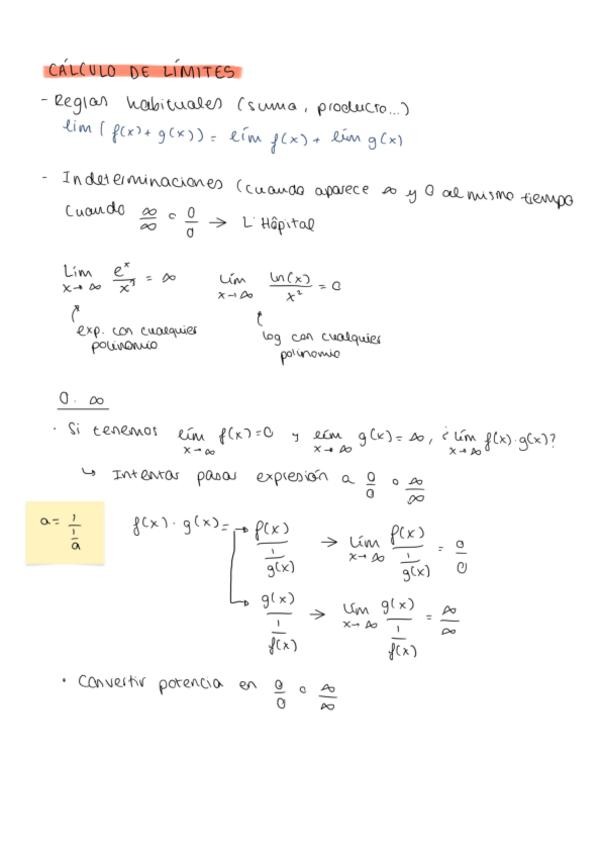 CÁLCULO DE LÍMITES
- Reglas habituales (suma, producto...)
lím (f(x) + g(x)) = lím f(x) + lím g(x)
- Indeterminaciones (cuando aparece ∞ y 0 al mismo tiempo
Cuando ∞/∞ o 0/0 → L'Hôpital
Lím x→∞ e^x/x^3 = ∞ Lím x→∞ ln(x)/x^2 = 0
exp. con cualquier polinomio
log con cualquier polinomio
0 · ∞
· Si tenemos lím x→∞ f(x)=0 y lím x→∞ g(x)=∞, ¿lím x→∞ f(x)·g(x)?
↳ Intentar pasar expresión a 0/0 o ∞/∞
a = 1/(1/a)
f(x) · g(x) = → f(x)/(1/g(x)) → Lím x→∞ f(x)/(1/g(x)) = 0/0
→ g(x)/(1/f(x)) → Lím x→∞ g(x)/(1/f(x)) = ∞/∞
· Convertir potencia en 0/0 o ∞/∞